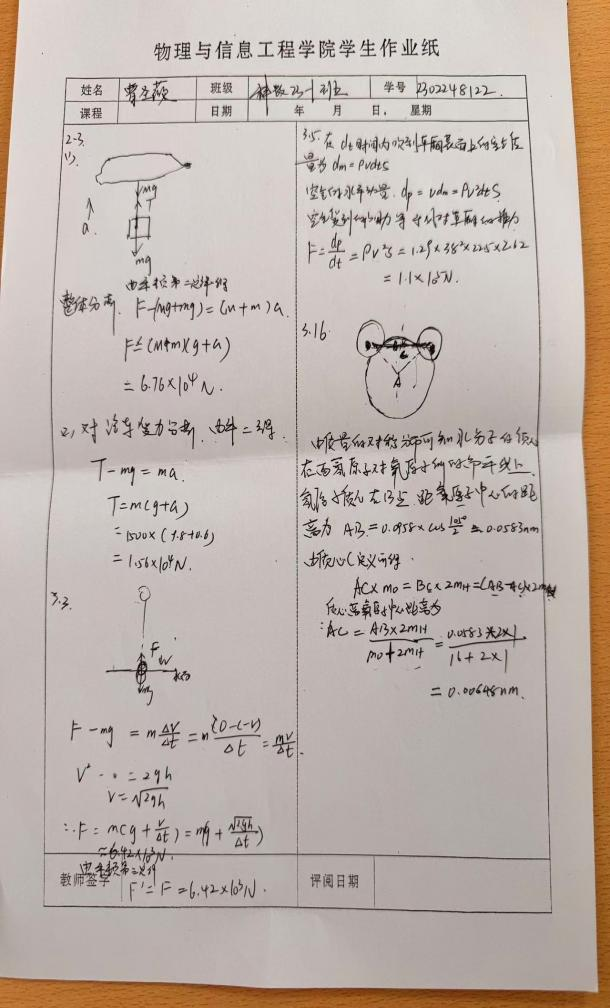 物理与信息工程学院学生作业纸
姓名 班级 23-1班 学号 2302248122.
课程 日期 年 月 日, 星期
2-3.
(1).
Mg
T
a.
mg
由牛顿第二定律得
整体分离. F-(Mg+mg)=(M+m)a.
F=(M+m)(g+a)
=6.76×10⁴N.
(2) 对 受力分析, 由牛二得.
T-mg=ma.
T=m(g+a)
=1500×(9.8+0.6)
=1.56×10⁴N.
3.3
F
mg
F-mg=m ΔV/Δt=m (0-(-v))/Δt=mv/Δt.
V²-0=2gh
v=√2gh
∴F=m(g+v/Δt)=mg+√2gh/Δt)
=6.42×10³N.
由牛顿第三定律
教师签字 F'=F=6.42×10³N.
3.5. 在dt时间内吹到车厢表面上的空气质
量为dm=ρvdtS
空气的水平动量. dp=vdm=ρv²dtS
F=dp/dt=ρv²S=1.29×38²×22.5×2.62
=1.1×10⁵N.
3.16
B
C
A
由质量的对称分布可知水分子的质心
在两氢原子对氧原子的角平分线上.
氢原子质心在B点. 距氧原子中心的距
离为AB=0.0958×cos 105°/2=0.0583nm
由质心C定义可得
AC×mo=BC×2mH=(AB-AC)×2mH
质心离氧原子中心距离为
∴AC=AB×2mH/mo+2mH=0.0583×2×1/16+2×1
=0.00648nm.
评阅日期